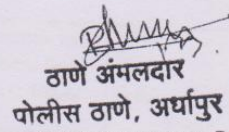 ठाणे अंमलदार
पोलीस ठाणे, अर्धापुर